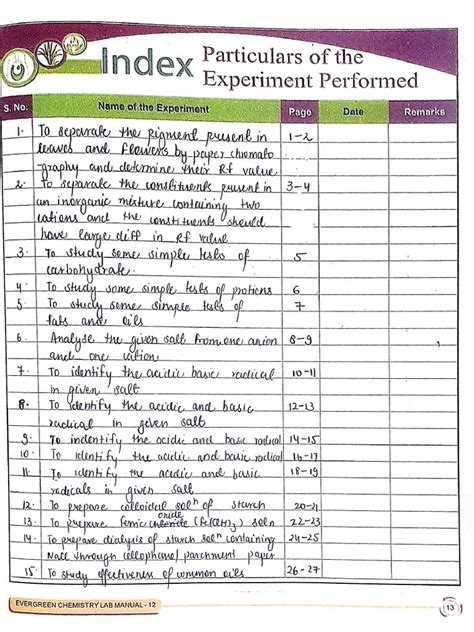 Index Particulars of the
Experiment Performed
S. No. Name of the Experiment Page Date Remarks
1. To separate the pigment present in 1-2
leaves and flowers by paper chromato
-graphy and determine their Rf value
2. To separate the constituents present in 3-4
an inorganic mixture containing two
cations and the constituents should
have large diff in Rf value
3. To study some simple tests of 5
carbohydrate.
4. To study some simple tests of protiens 6
5. To study some simple tests of 7
fats and oils
6. Analyse the given salt from one anion 8-9
and one cation
7. To identify the acidic basic radical 10-11
in given salt
8. To identify the acidic and basic 12-13
radical in given salt
9. To indentify the acidic and basic radical 14-15
10. To identify the acidic and basic radical 16-17
11. To identify the acidic and basic 18-19
radicals in given salt
12. To prepare colloidal solⁿ of starch 20-21
oxide
13. To prepare ferric chloride (Fe(OH)₃) soln 22-23
14. To prepare dialysis of starch solⁿ containing 24-25
NaCl through cellophane/parchment paper
15. To study effectiveness of common oils 26-27
EVERGREEN CHEMISTRY LAB MANUAL - 12 13